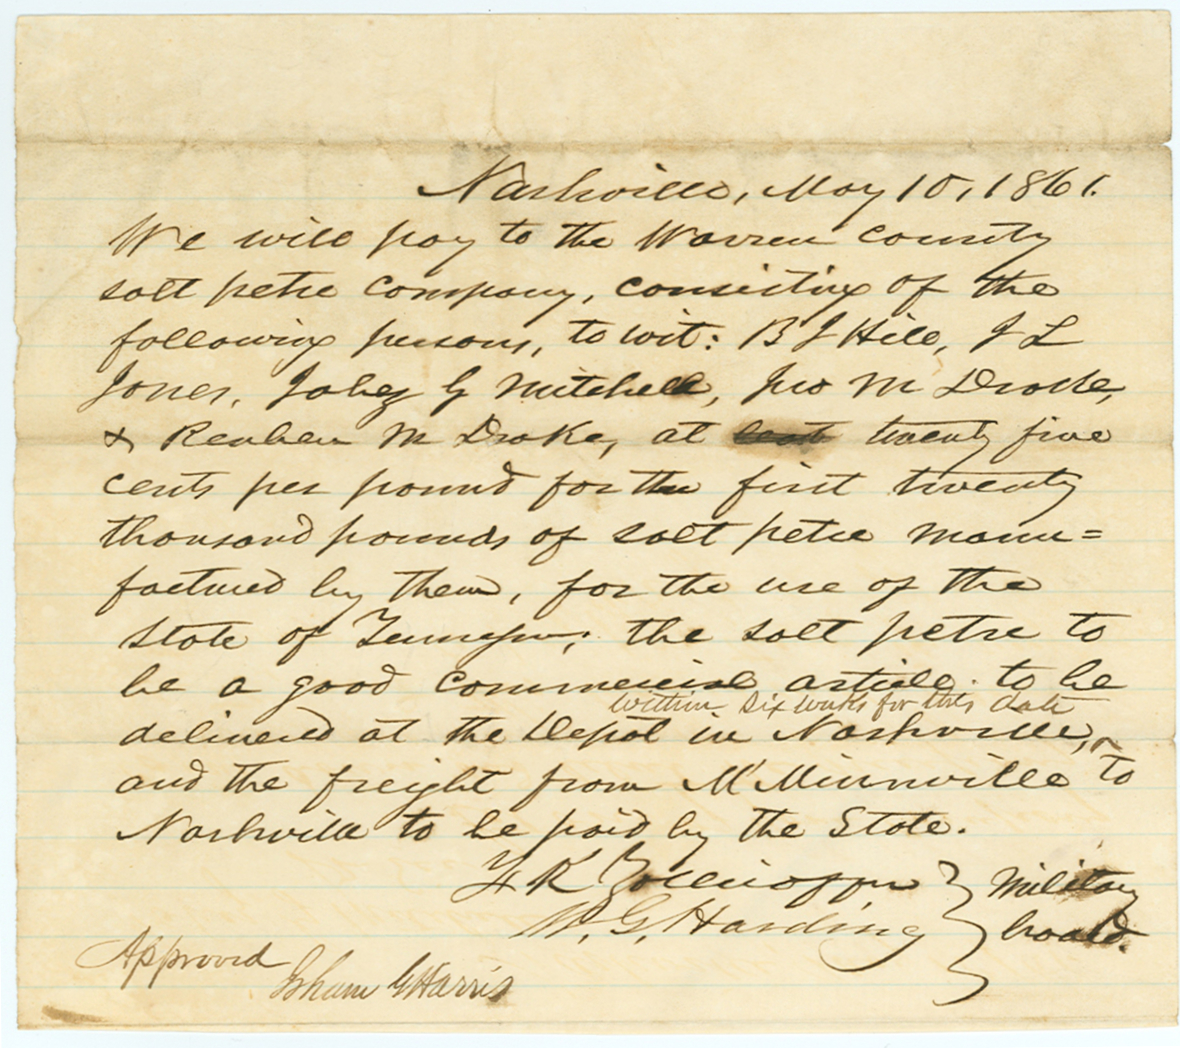 Nashville, May 10, 1861.
We will pay to the Warren County
salt petre company, consisting of the
following persons, to wit: B J Hill, J L
Jones, Jabez G Mitchell, Jno M Drake,
& Reuben M Drake, at twenty five
cents per pound for the first twenty
thousand pounds of salt petre manu=
factured by them, for the use of the
State of Tennessee; the salt petre to
be a good commercial article. to be
within six weeks from this date
delivered at the Depot in Nashville,
and the freight from McMinnville to
Nashville to be paid by the State.
F K Zollicoffer } Military
W. G. Harding } board.
Approved
Isham G Harris